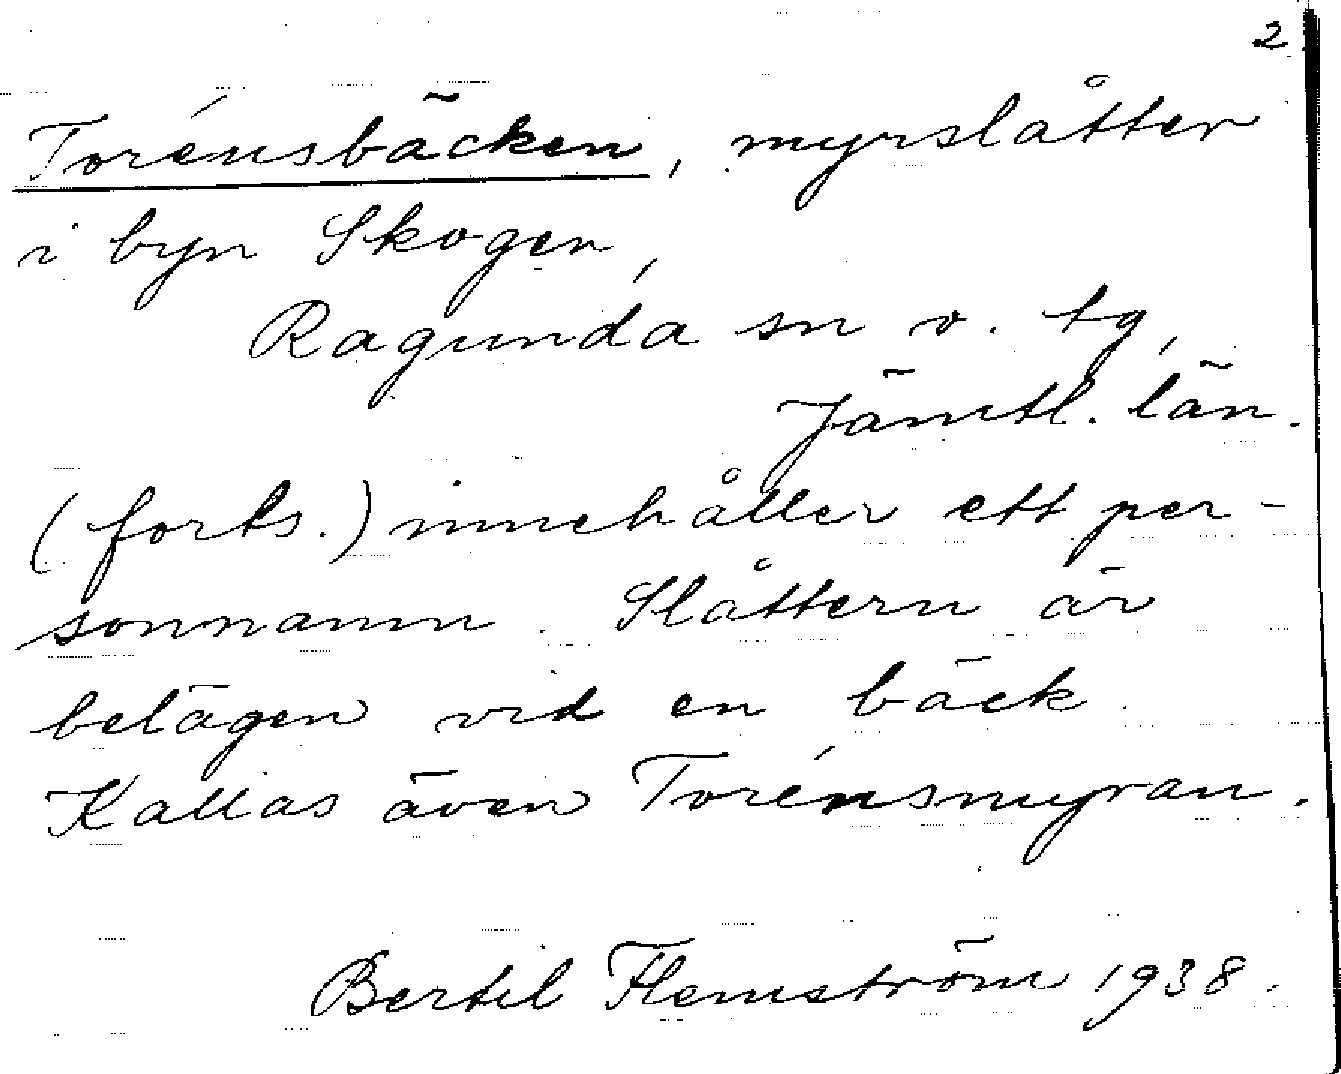 2
Torénsbäcken, myrslåtter
i byn Skogen,
Ragunda sn o. tg,
Jämtl. län.
(forts.) innehåller ett per-
sonnamn. Slåttern är
belägen vid en bäck.
Kallas även Torénsmyran.
Bertil Flemström 1938.